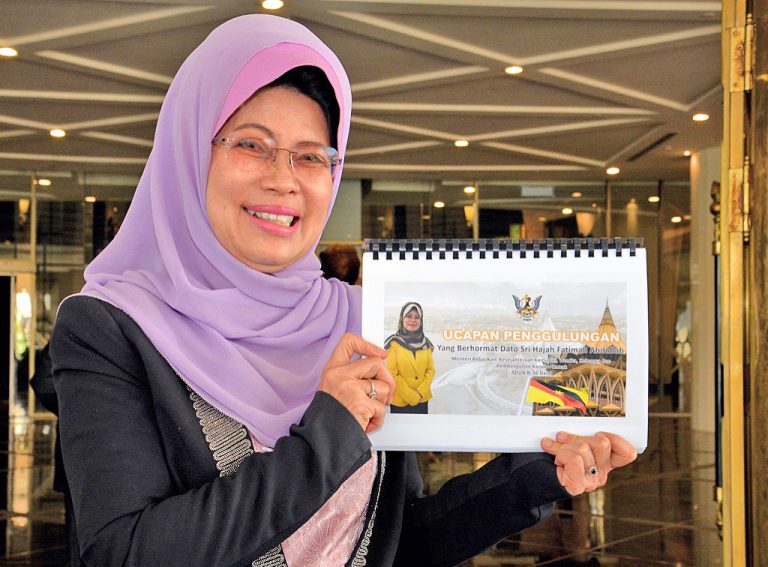 UCAPAN PENGGULUNGAN
Yang Berhormat Dato Sri Hajah Fatimah Abdullah
Menteri Kebajikan, Kesejahteraan Komuniti, Wanita, Keluarga dan
Pembangunan Kanak-Kanak
ADUN N.56 Dalat